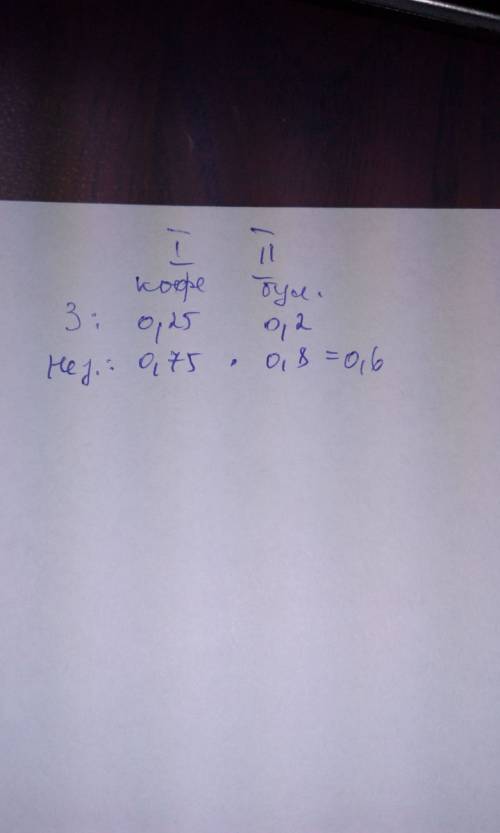 I II
кофе бул.
З: 0,25 0,2
Нез.: 0,75 · 0,8 = 0,6